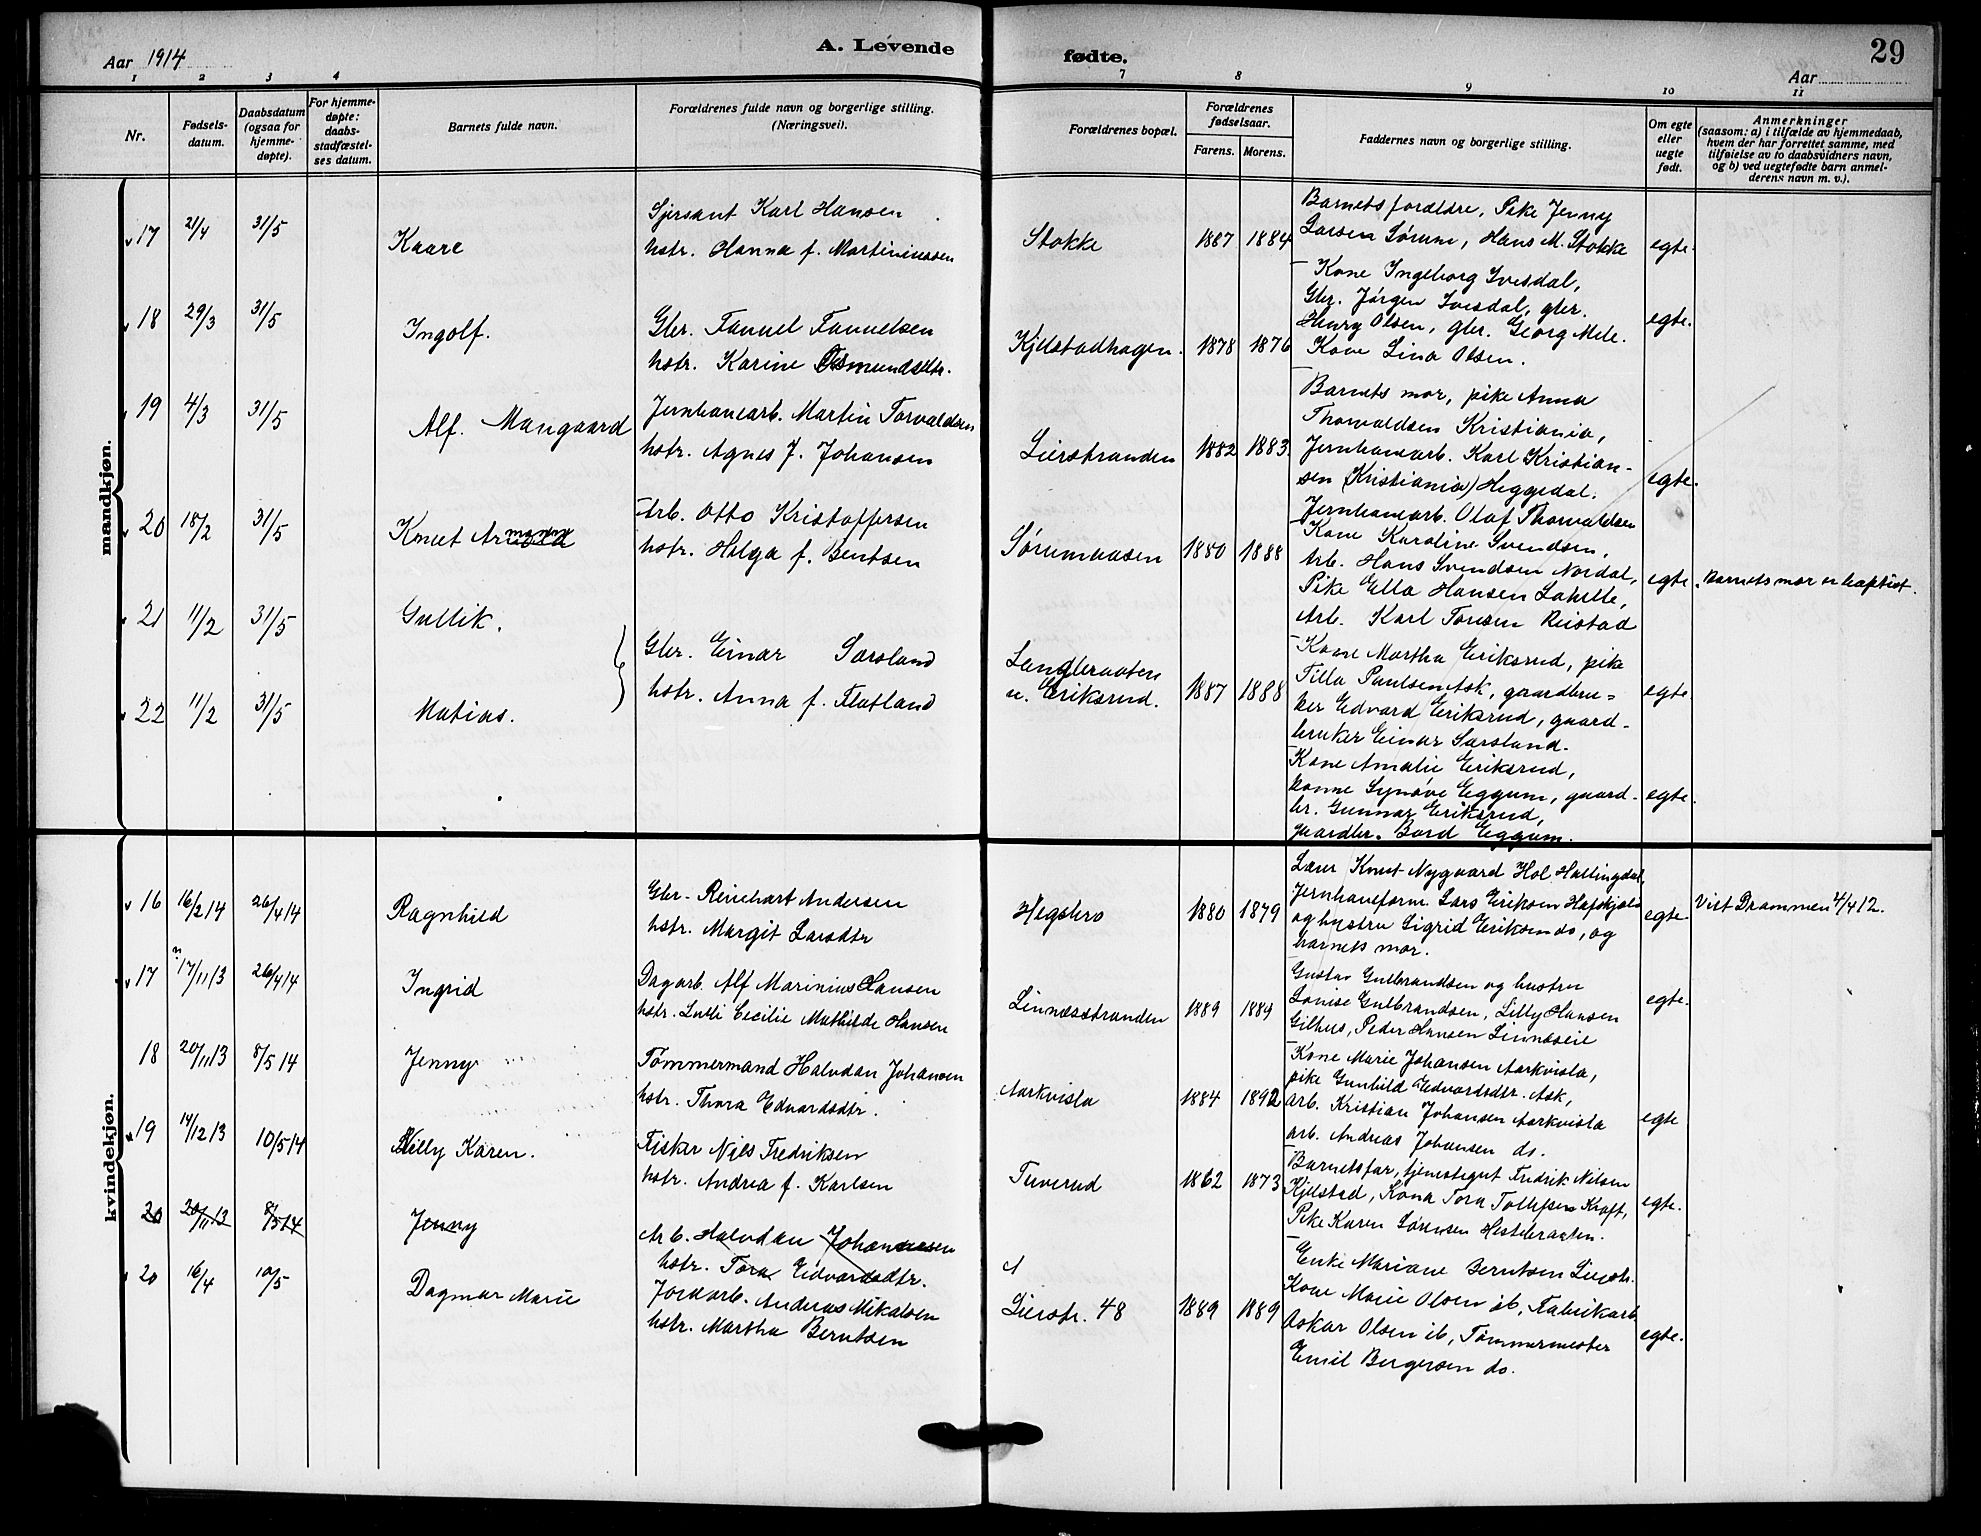 A. Levende
fødte.
29
Aar 1914
Aar
1 2 3 4
7 8 9 10 11
Nr.
Fødsels-
datum.
Daabsdatum
(ogsaa for
hjemme-
døpte).
For hjemme-
døpte:
daabs-
stadfæstel-
ses datum.
Barnets fulde navn.
Forældrenes fulde navn og borgerlige stilling.
(Næringsvei).
Forældrenes bopæl.
Forældrenes
fødselsaar.
Farens. Morens.
Faddernes navn og borgerlige stilling.
Om egte
eller
uegte
født.
Anmerkninger
(saasom: a) i tilfælde av hjemmedaab,
hvem der har forrettet samme, med
tilføielse av to daabsvidners navn,
og b) ved uegtefødte barn anmel-
derens navn m. v.).
mandkjøn.
17 21/4 31/5 Kaare
Sjersant Karl Hansen
hstr. Hanna f. Martiniussen
Stokke 1887 1884
Barnets forældre, Pike Jenny
Larsen Sørum, Hans M. Stokke
egte.
18 29/3 31/5 Ingolf.
Gbr. Fanuel Fanuelsen
hstr. Karine Osmundsdtr.
Kjelstadhagen. 1878 1876
Kone Ingeborg Ivesdal,
Gbr. Jørgen Ivesdal, gbr.
Henry Olsen, gbr. Georg Mele.
Kone Lina Olsen.
egte.
19 4/3 31/5 Alf. Maugaard
Jernbanearb. Martin Torvaldsen
hstr. Agnes J. Johansen
Lierstranden 1882 1883.
Barnets mor, pike Anna
Thorvaldsen Kristiania,
Jernbanearb. Karl Kristian-
sen (Kristiania) Heggedal.
Jernbanearb. Olaf Thorvaldsen
egte.
20 18/2 31/5 Knut
Arb. Otto Kristoffersen
hstr. Helga f. Bentsen
Sørumaasen 1880 1888
Kone Karoline Svendsen,
Arb. Hans Svendsen Nordal,
Pike Ella Hansen Lahelle,
Arb. Karl Toresen Reistad
egte. Barnets mor er baptist.
21 11/2 31/5 Gullik.
22 11/2 31/5 Matias.
Gbr. Einar Sarsland
hstr. Anna f. Flatland
Lengleraaten
u. Eriksrud. 1887 1888
Kone Martha Eriksrud, pike
Tilla Paulsen Ask, gaardbru-
ker Edvard Eriksrud, gaard-
bruker Einar Sarsland.
egte.
Kone Amalie Eriksrud,
kone Synøve Eggum, gaard-
br. Gunnar Eriksrud,
gaardbr. Bård Eggum.
egte.
kvindekjøn.
16 16/2 14 26/4 14 Ragnhild
Gbr. Reinhart Andersen
hstr. Margit Larsdtr
Hegsbro 1880 1879
Lærer Knut Nygaard Hol Hallingdal,
Jernbaneform. Lars Eriksen
og hustru Sigrid Eriksen do, og
barnets mor.
egte. Viet Drammen 4/4 12.
17 17/11 13 26/4 14 Ingrid
Dagarb. Alf Marinius Hansen
hstr. Lulli Cecilie Mathilde Hansen
Linnæsstranden 1889 1889
Gustav Gulbrandsen og hustru
Louise Gulbrandsen, Lilly Hansen
Gilhus, Peder Hansen Linnæseie
egte.
18 20/11 13 8/5 14 Jenny
Tømmermand Halvdan Johansen
hstr. Thora Edvardsdtr.
Aarkvisla 1884 1892
Kone Marie Johansen Aarkvisla,
pike Gunhild Edvardsdtr. Ask,
arb. Kristian Johansen Aarkvisla
arb. Andreas Johansen do.
egte
19 14/12 13 10/5 14 Killy Karen.
Fisker Nils Fredriksen
hstr. Andrea f. Karlsen
Tuverud 1862 1873
Barnets far, tjenestegut Fredrik Nilsen
Kjelstad, Kona Tora Tollefsen Kraft,
Pike Karen Sørensen Hestebraaten.
egte.
20 20/11 13 8/5 14 Jenny
Arb. Halvdan Johannesen
hstr. Tora Edvardsdtr.
20 16/4 10/5 Dagmar Marie
Jordarb. Andreas Mikalsen
hstr. Martha Berntsen
Lierstr. 48 1889 1889
Enke Mariane Berntsen Lierstr.
Kone Marie Olsen ib, Fabrikarb.
Oskar Olsen ib, Tømmermester
Emil Bergersen do.
egte.